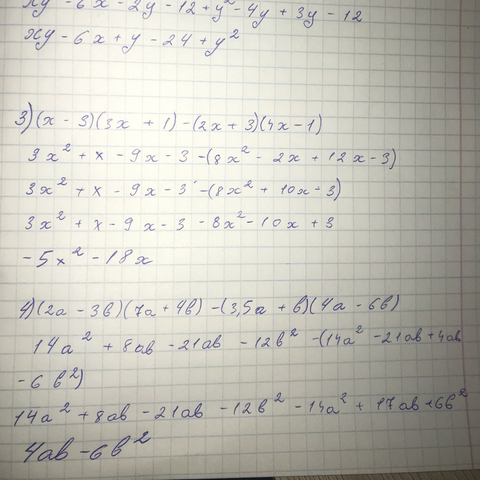 xy - 6x - 2y - 12 + y² - 4y + 3y - 12
xy - 6x + y - 24 + y²
3) (x - 3)(3x + 1) - (2x + 3)(4x - 1)
3x² + x - 9x - 3 - (8x² - 2x + 12x - 3)
3x² + x - 9x - 3 - (8x² + 10x - 3)
3x² + x - 9x - 3 - 8x² - 10x + 3
-5x² - 18x
4) (2a - 3b)(7a + 4b) - (3,5a + b)(4a - 6b)
14a² + 8ab - 21ab - 12b² - (14a² - 21ab + 4ab
- 6b²)
14a² + 8ab - 21ab - 12b² - 14a² + 17ab + 6b²
4ab - 6b²